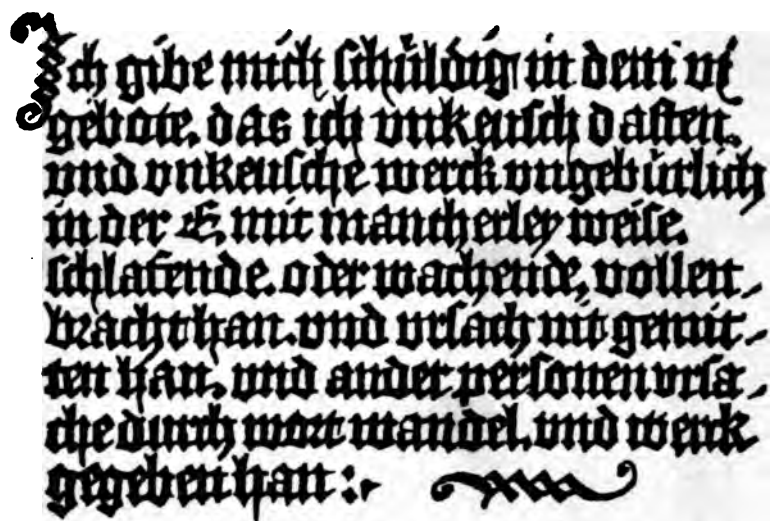 Ich gibe mich schuldig in dem vi
gebote. das ich vnkeusch dasten.
vnd vnkeusche werck vngebürlich
in der E. mit mancherley weise.
schlafende. oder wachende, vollen-
bracht han. vnd vrsach nit gemit-
ten han, vnd ander personen vrsa-
che durch wort wandel. vnd werck
gegeben han :.